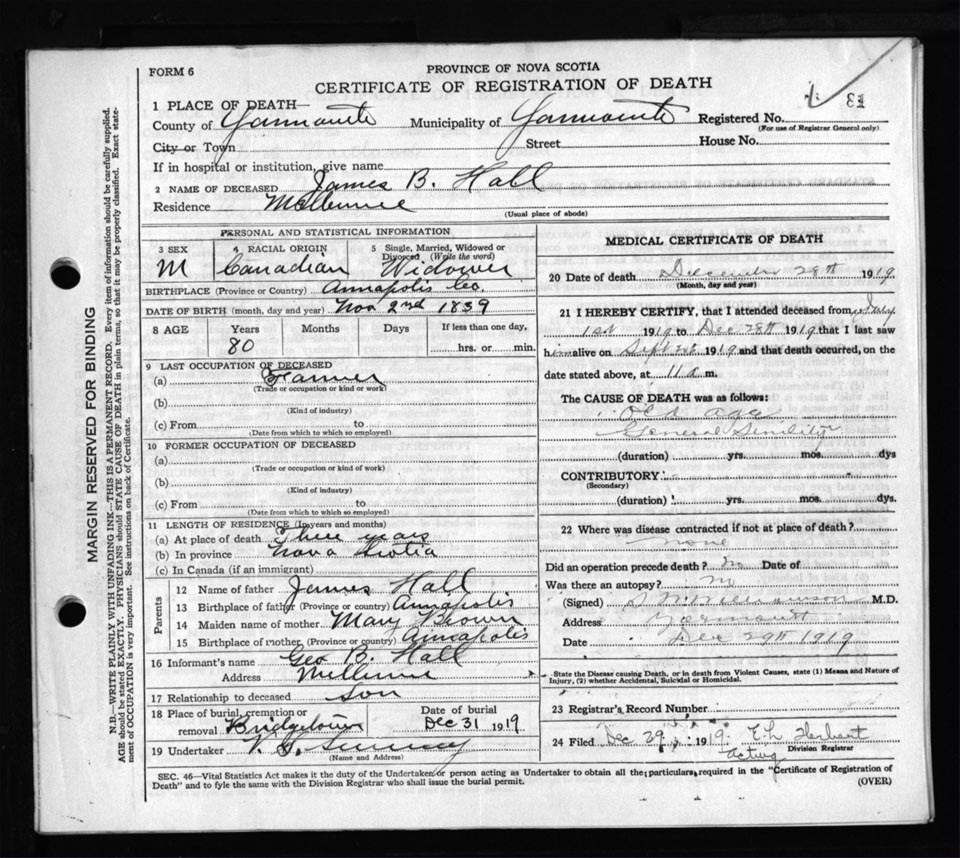 FORM 6
PROVINCE OF NOVA SCOTIA
CERTIFICATE OF REGISTRATION OF DEATH
1 PLACE OF DEATH—
County of Yarmouth Municipality of Yarmouth Registered No.
(For use of Registrar General only)
City or Town Street House No.
If in hospital or institution, give name
2 NAME OF DECEASED James B. Hall
Residence
(Usual place of abode)
PERSONAL AND STATISTICAL INFORMATION
3 SEX M
4 RACIAL ORIGIN Canadian
5 Single, Married, Widowed or Divorced (Write the word) Widower
BIRTHPLACE (Province or Country) Annapolis Co.
DATE OF BIRTH (month, day and year) Nov 2nd 1839
8 AGE Years Months Days If less than one day,
80 hrs. or min.
9 LAST OCCUPATION OF DECEASED
(a) Farmer
(Trade or occupation or kind or work)
(b)
(Kind of industry)
(c) From to
(Date from which to which so employed)
10 FORMER OCCUPATION OF DECEASED
(a)
(Trade or occupation or kind of work)
(b)
(Kind of industry)
(c) From to
(Date from which to which so employed)
11 LENGTH OF RESIDENCE (In years and months)
(a) At place of death Three years
(b) In province Nova Scotia
(c) In Canada (if an immigrant)
Parents
12 Name of father James Hall
13 Birthplace of father (Province or country) Annapolis
14 Maiden name of mother Mary Brown
15 Birthplace of mother, (Province or country) Annapolis
16 Informant's name Geo B. Hall
Address
17 Relationship to deceased son
18 Place of burial, cremation or removal Bridgetown
Date of burial Dec 31 1919
19 Undertaker
(Name and Address)
MEDICAL CERTIFICATE OF DEATH
20 Date of death December 28th 1919
(Month, day and year)
21 I HEREBY CERTIFY, that I attended deceased from
1st 1919 to Dec 28th 1919 that I last saw
him alive on Sept 1919 and that death occurred, on the
date stated above, at 11 a m.
The CAUSE OF DEATH was as follows:
old age
General Senility
(duration) yrs. mos. dys
CONTRIBUTORY
(Secondary)
(duration) yrs. mos. dys.
22 Where was disease contracted if not at place of death?
none
Did an operation precede death? No Date of
Was there an autopsy?
(Signed) M.D.
Address Yarmouth
Date Dec 29th 1919
State the Disease causing Death, or in death from Violent Causes, state (1) Means and Nature of
Injury, (2) whether Accidental, Suicidal or Homicidal.
23 Registrar's Record Number
24 Filed Dec 29 1919 E L Herbert
Acting Division Registrar
SEC. 46—Vital Statistics Act makes it the duty of the Undertaker or person acting as Undertaker to obtain all the particulars required in the "Certificate of Registration of
Death" and to fyle the same with the Division Registrar who shall issue the burial permit.
(OVER)
MARGIN RESERVED FOR BINDING
N.B.—WRITE PLAINLY WITH UNFADING INK—THIS IS A PERMANENT RECORD. Every item of information should be carefully supplied.
AGE should be stated EXACTLY. PHYSICIANS should STATE CAUSE OF DEATH in plain terms, so that it may be properly classified. Exact state-
ment of OCCUPATION is very important. See instructions on back of Certificate.